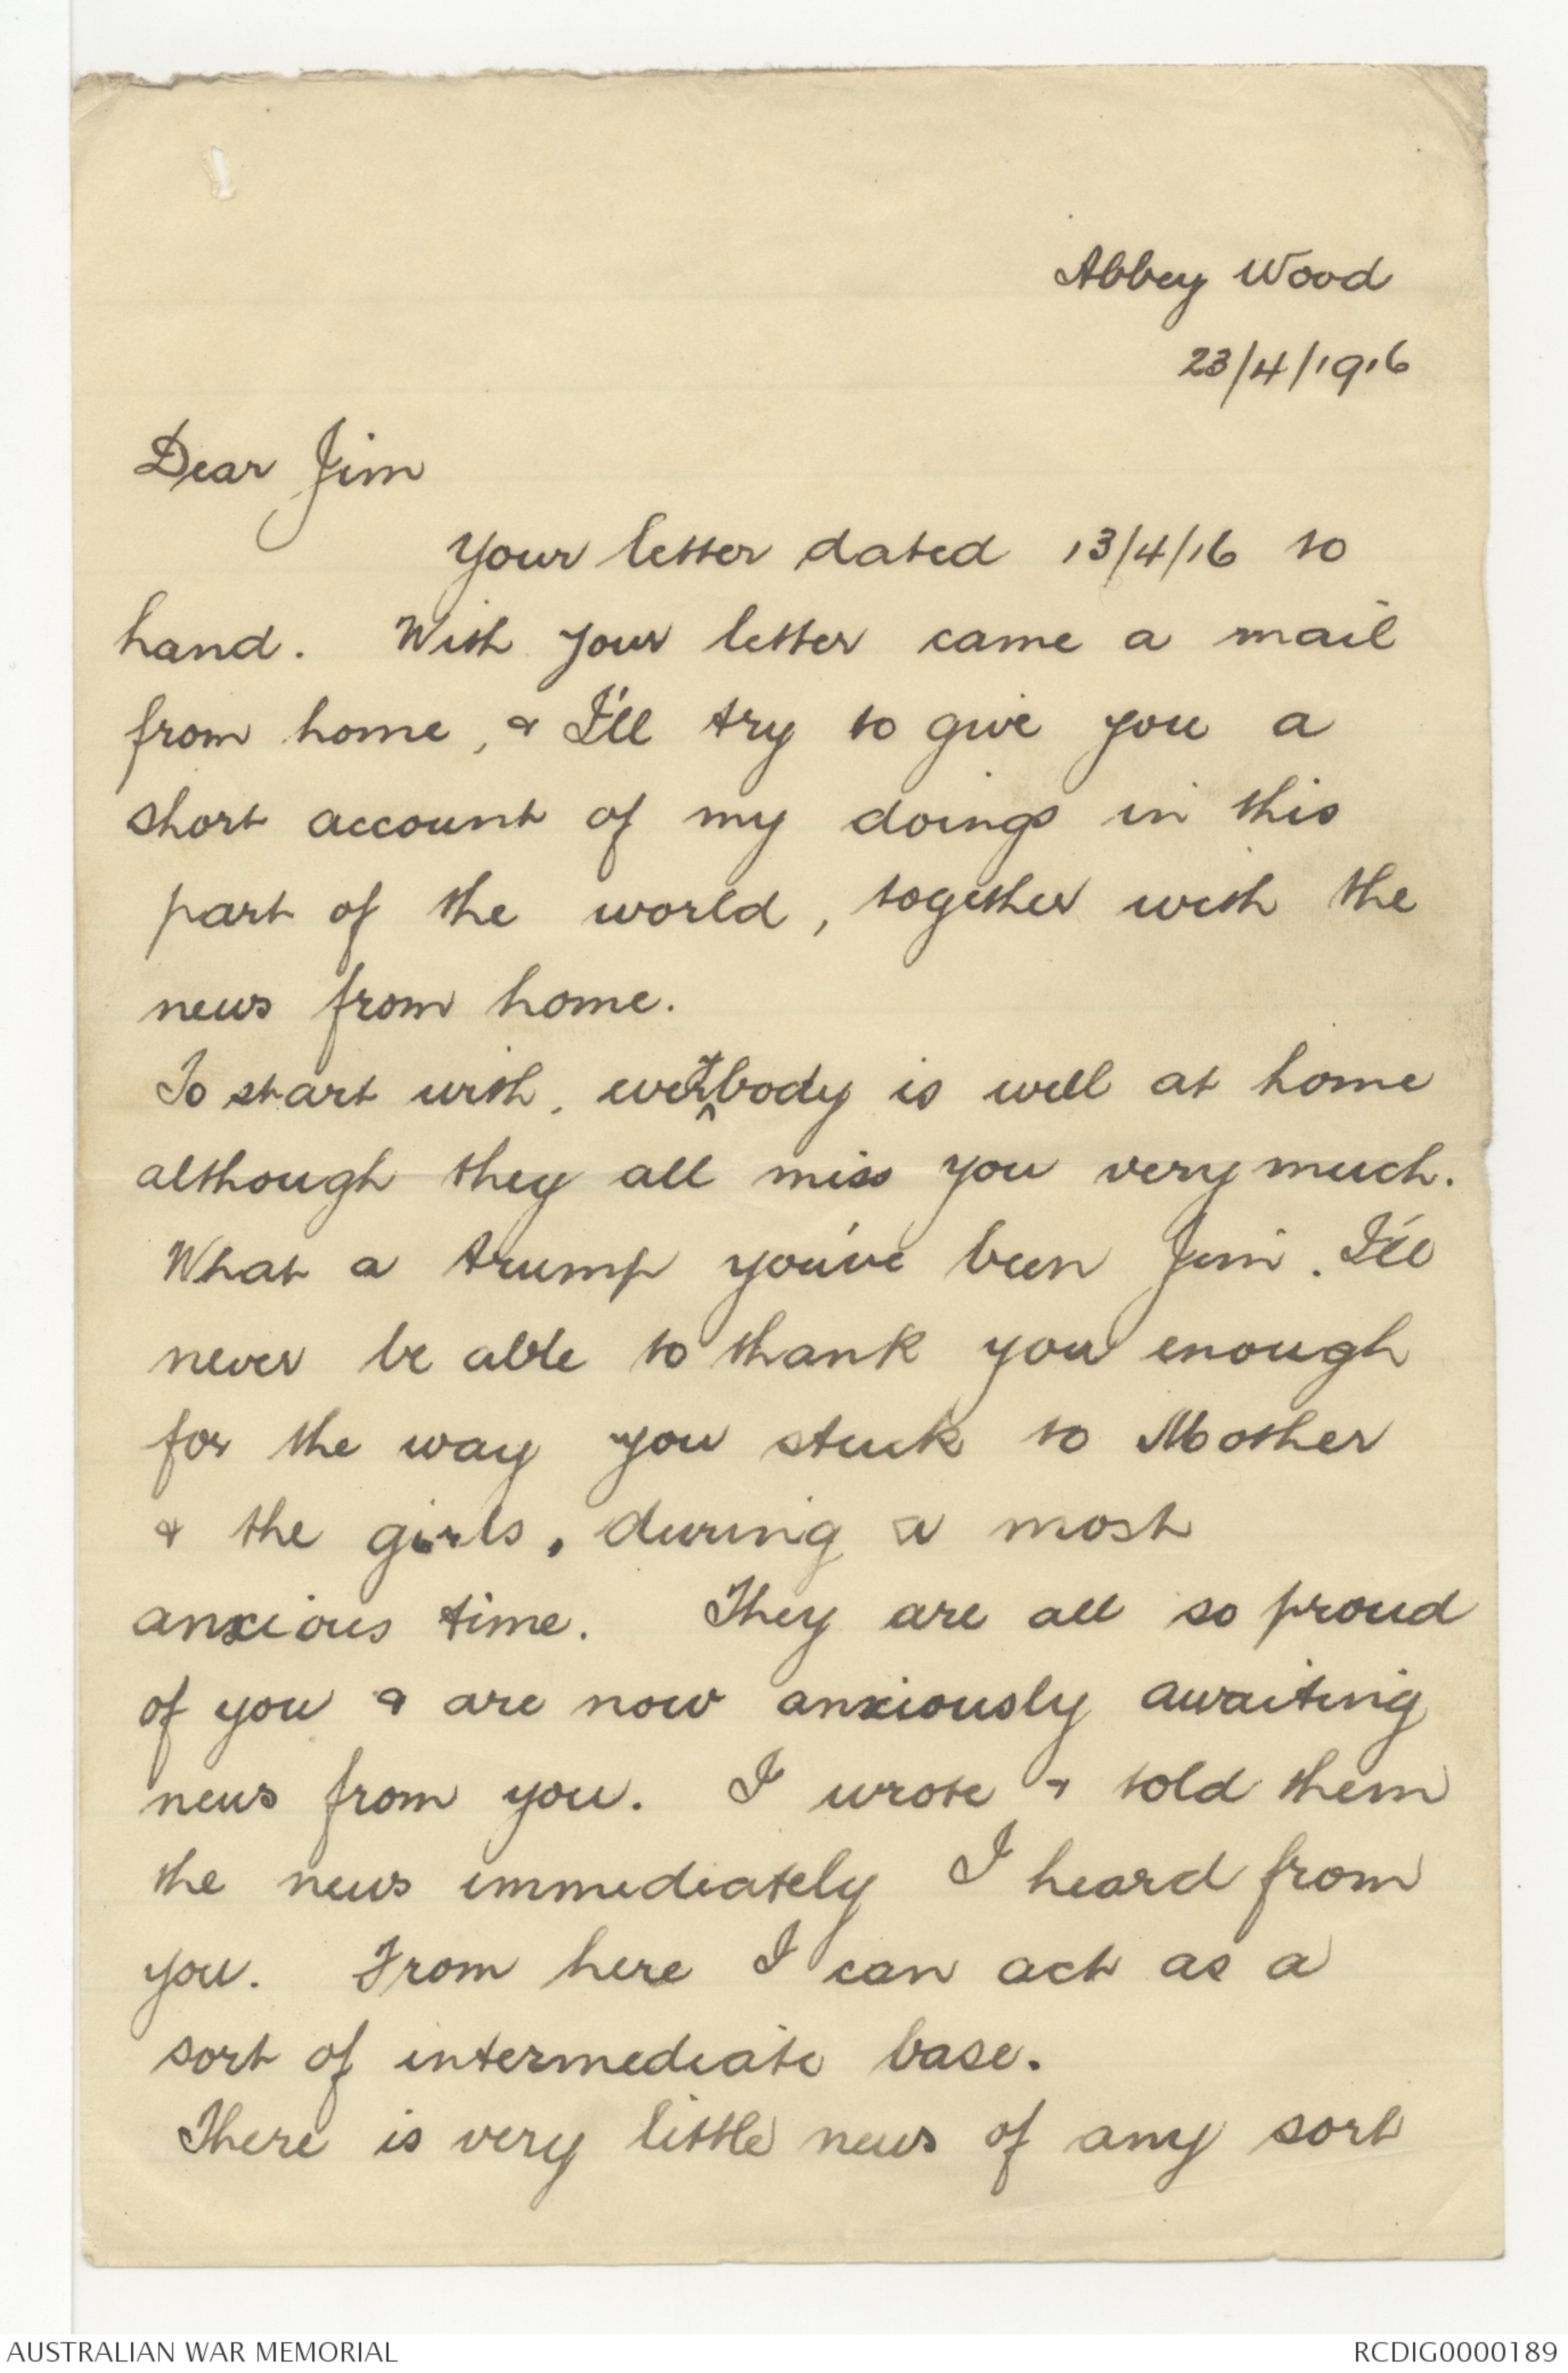 Abbey Wood
23/4/1916
Dear Jim
Your letter dated 13/4/16 to
hand. With your letter came a mail
from home, & I'll try to give you a
short account of my doings in this
part of the world, together with the
news from home.
To start with, everybody is well at home
although they all miss you very much.
What a trump you've been Jim. I'll
never be able to thank you enough
for the way you stuck to Mother
& the girls, during a most
anxious time. They are all so proud
of you & are now anxiously awaiting
news from you. I wrote & told them
the news immediately I heard from
you. From here I can act as a
sort of intermediate base.
There is very little news of any sort
AUSTRALIAN WAR MEMORIAL
RCDIG0000189